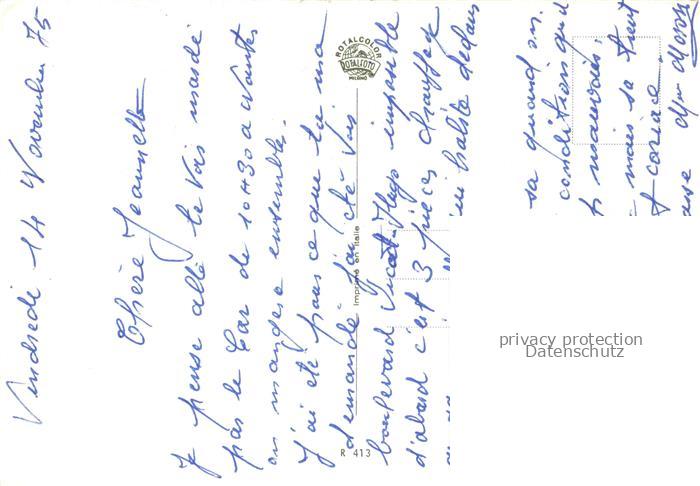 Vendredi 14 Novembre 75
Chère Jeannette
Je pense allé te voir mardi
par le Car de 10H30 a Nantes
on mangera ensemble.
J'ai été pour ce que tu ma
demandé j'ai été voir
boulevard Victor Hugo impossible
d'abord c'est 3 pièces chauffage
in habité dedans
sa quand on.
condition qu
mauvais,
mais sa faut
coriace
ROTALCOLOR
ROTALFOTO
MILANO
Imprimé en Italie
R 413
privacy protection
Datenschutz